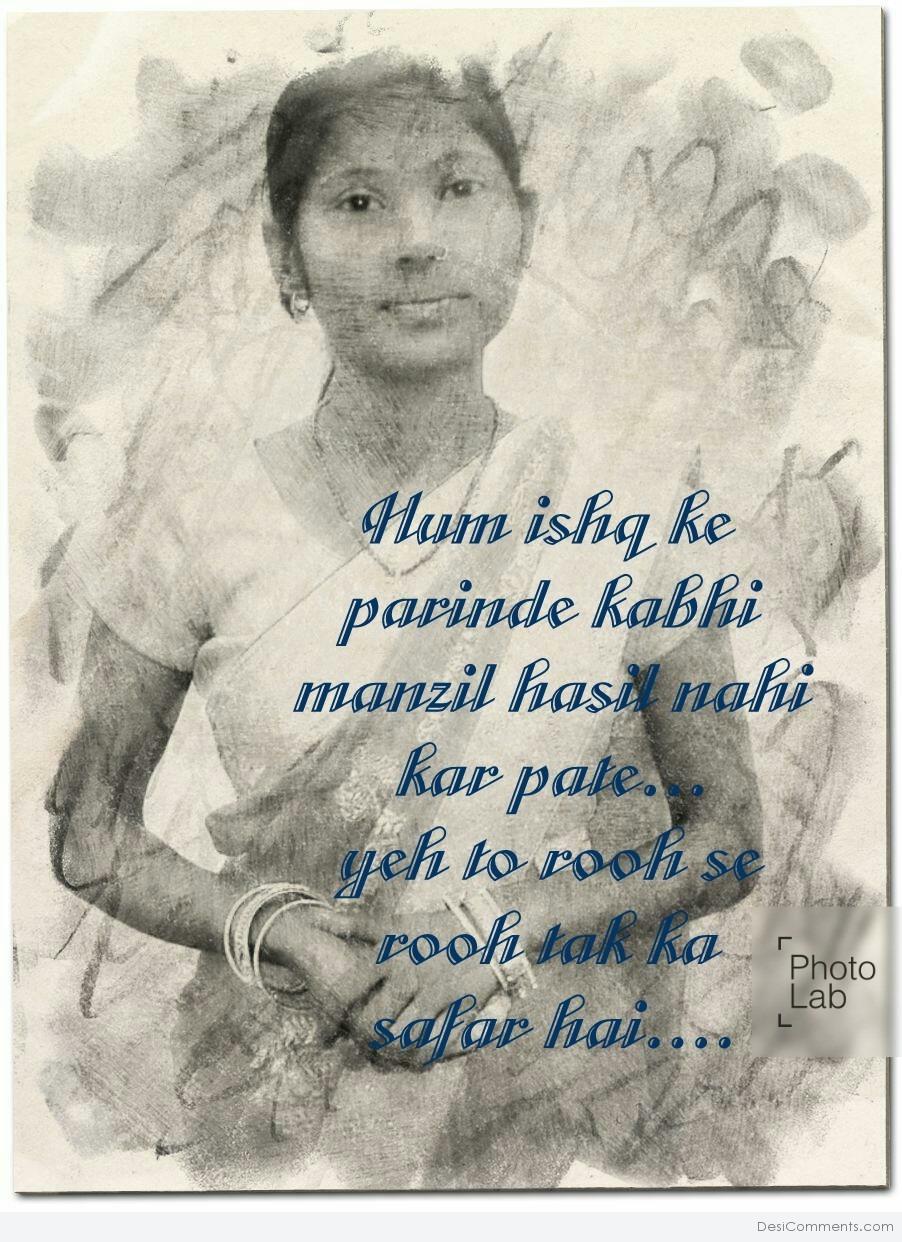 Hum ishq ke
parinde kabhi
manzil hasil nahi
kar pate...
yeh to rooh se
rooh tak ka
safar hai....
Photo
Lab
DesiComments.com